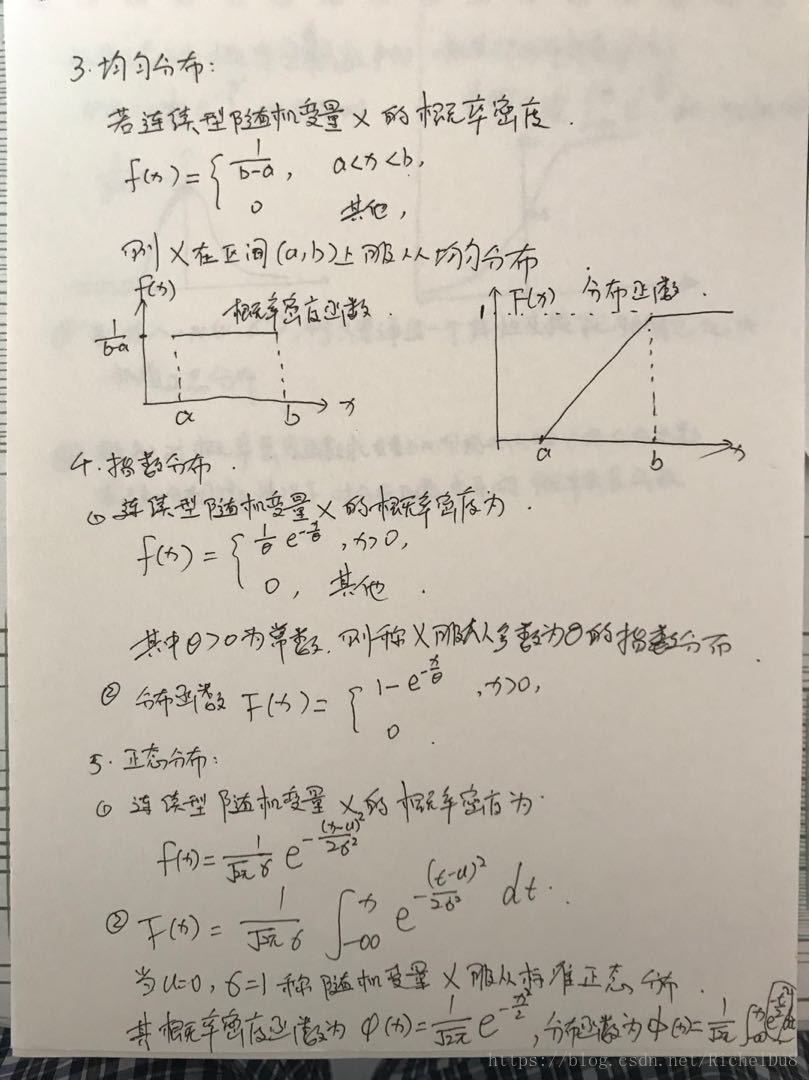 3.均匀分布:
若连续型随机变量X的概率密度.
f(x)={ 1/(b-a), a<x<b,
0 其他,
则X在区间(a,b)上服从均匀分布
f(x) 概率密度函数. 1/(b-a) a b x
F(x) 分布函数. 1 a b x
4.指数分布.
① 连续型随机变量X的概率密度为.
f(x)={ 1/θ e^(-x/θ), x>0,
0, 其他.
其中θ>0为常数,则称X服从参数为θ的指数分布.
② 分布函数 F(x)={ 1-e^(-x/θ), x>0,
0.
5.正态分布:
① 连续型随机变量X的概率密度为.
f(x)=1/(√2π σ) e^(-(x-u)²/2σ²)
② F(x)=1/(√2π σ) ∫_{-∞}^{x} e^(-(t-u)²/2σ²) dt.
当u=0,σ=1称随机变量X服从标准正态分布.
其概率密度函数为φ(x)=1/√2π e^(-x²/2),分布函数为Φ(x)=1/√2π ∫_{-∞}^{x} e^(-t²/2) dt
https://blog.csdn.net/RichelDu8